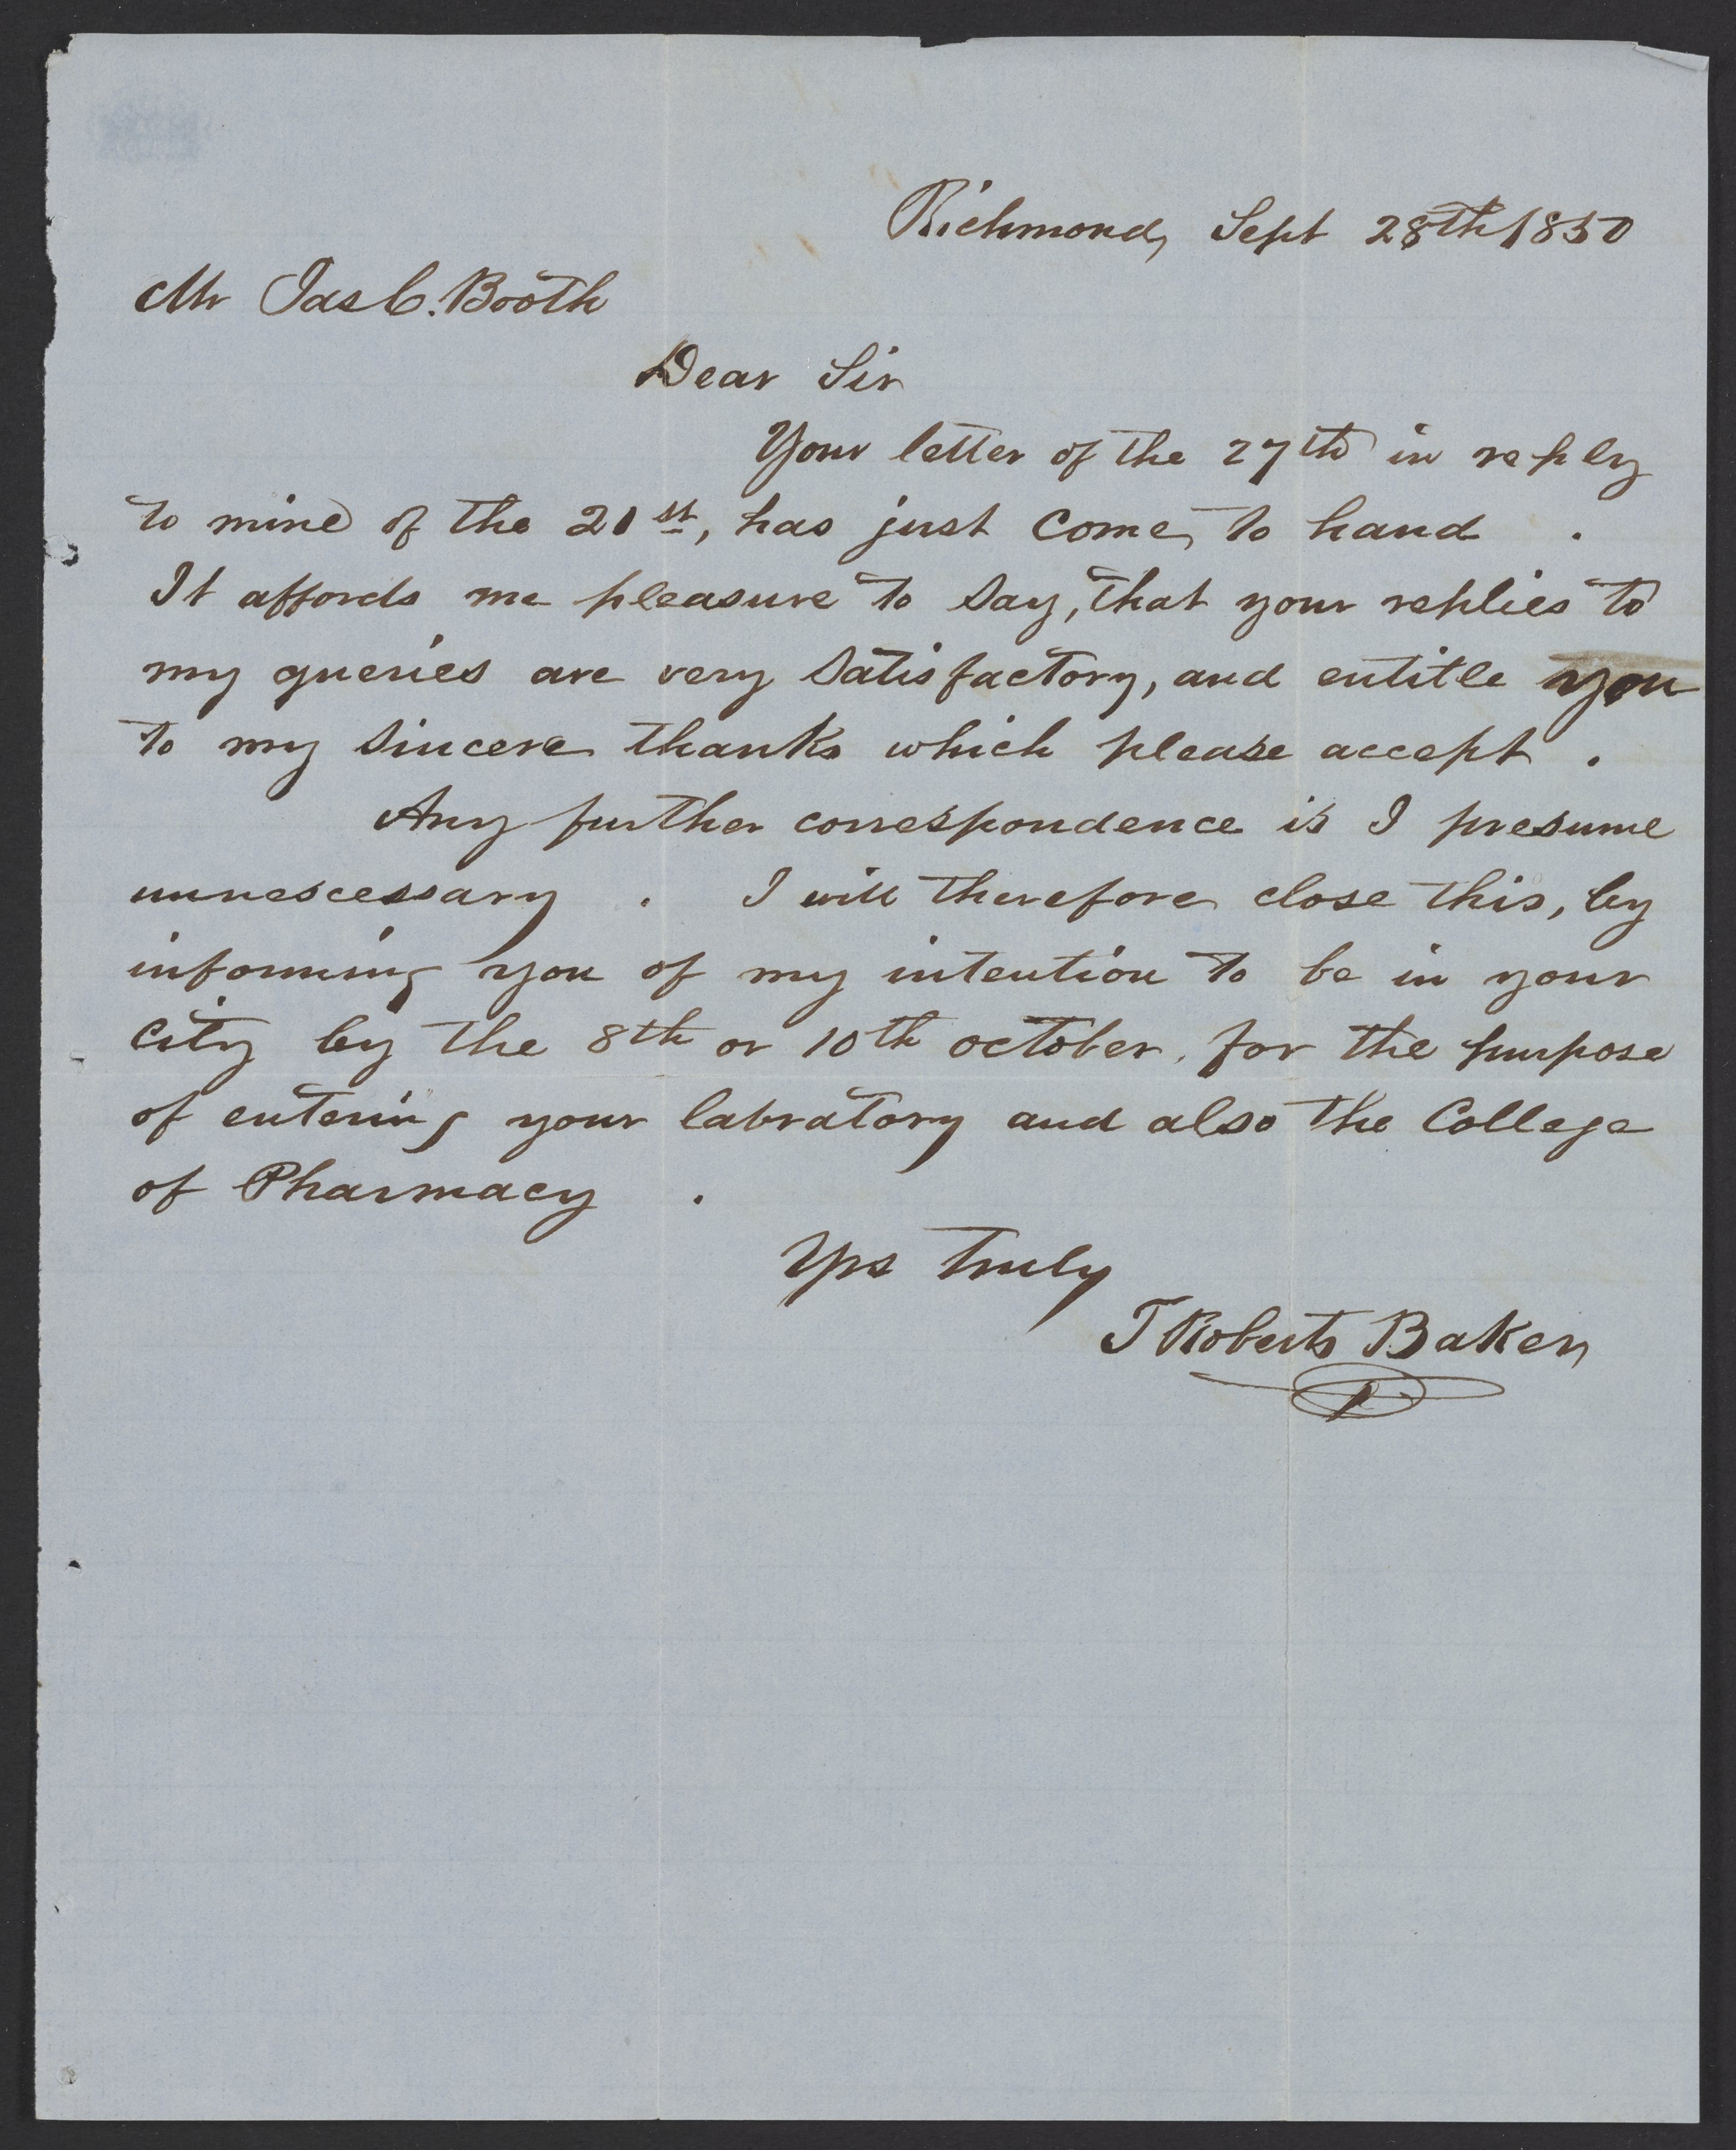 Richmond, Sept 28th 1850
Mr Jas C. Booth
Dear Sir
Your letter of the 27th in reply
to mine of the 21st, has just come to hand .
It affords me pleasure to say, that your replies to
my queries are very satisfactory, and entitle you
to my sincere thanks which please accept .
Any further correspondence is I presume
unnescessary . I will therefore close this, by
informing you of my intention to be in your
city by the 8th or 10th october, for the purpose
of entering your labratory and also the College
of Pharmacy .
Yrs truly
T Roberts Baker